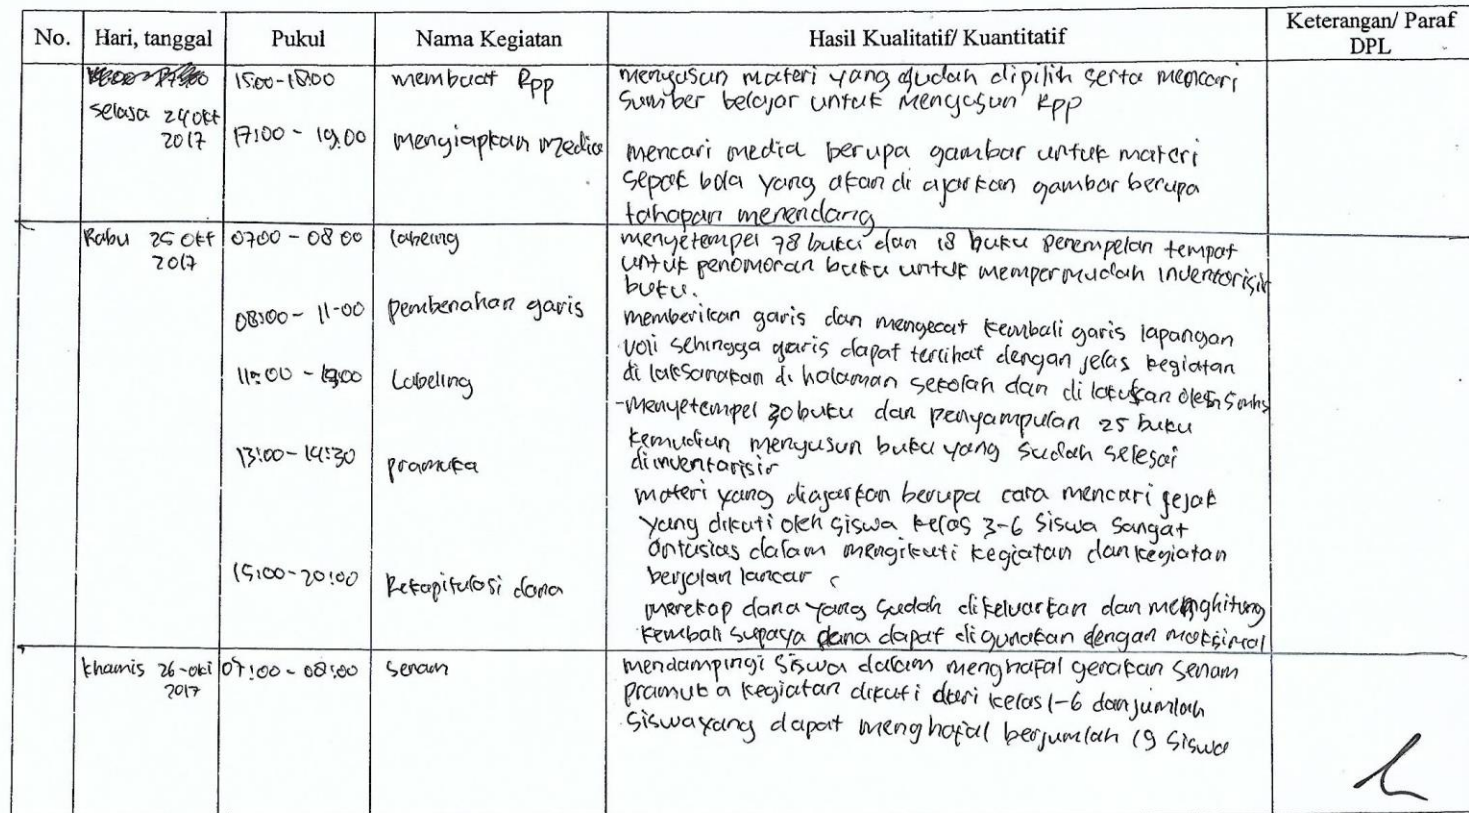 No. Hari, tanggal Pukul Nama Kegiatan Hasil Kualitatif/ Kuantitatif Keterangan/ Paraf DPL
15:00-18:00 membuat Rpp menyusun materi yang sudah dipilih serta mencari
selasa 24 okt sumber belajar untuk menyusun Rpp
2017 17:00 - 19.00 menyiapkan media
mencari media berupa gambar untuk materi
sepak bola yang akan di ajarkan gambar berupa
tahapan menendang
Rabu 25 Okt 0700 - 08 00 labeling menyetempel 78 buku dan 18 buku penempelan tempat
2017 untuk penomoran buku untuk mempermudah inventorisir
buku.
08:00 - 11-00 pembenahan garis memberikan garis dan mengecat kembali garis lapangan
voli sehingga garis dapat terlihat dengan jelas kegiatan
11:00 - Labeling di laksanakan di halaman sekolah dan di lakukan oleh 5 mhs
-menyetempel 30 buku dan penyampulan 25 buku
kemudian menyusun buku yang sudah selesai
13:00-14:30 pramuka diinventarisir
materi yang diajarkan berupa cara mencari jejak
yang dikuti oleh siswa kelas 3-6 siswa sangat
antusias dalam mengikuti kegiatan dan kegiatan
15:00-20:00 Rekapitulasi dana berjalan lancar
merekap dana yang sudah dikeluarkan dan menghitung
kembali supaya dana dapat digunakan dengan maksimal
khamis 26-okt 07:00 - 08:00 senam mendampingi siswa dalam menghafal gerakan senam
2017 pramuka kegiatan dikuti dari kelas 1-6 dan jumlah
siswa yang dapat menghafal berjumlah 19 siswa